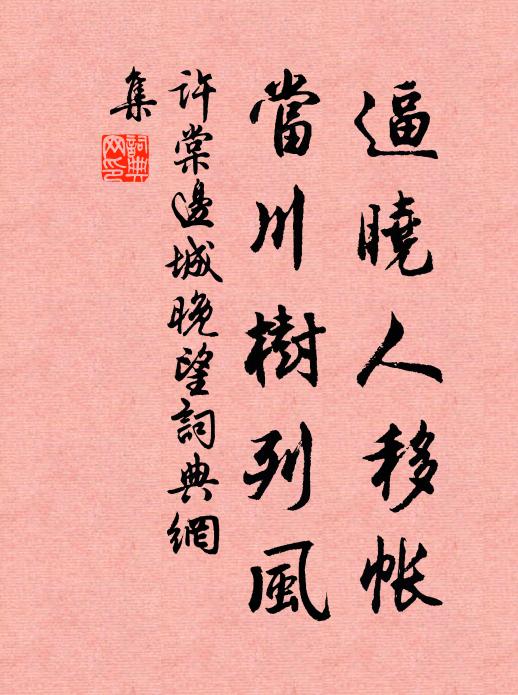 逼曉人移帐
當川樹列風
許棠邊城晚望詞典網
集
詞典
网印